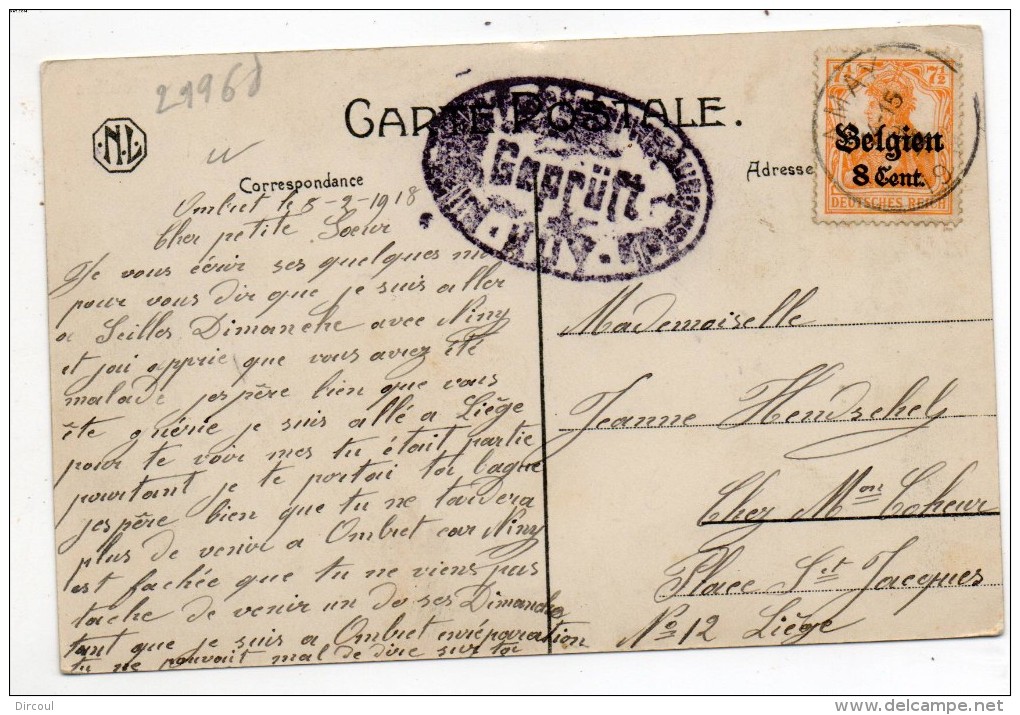 29968
N.L.
CARTE POSTALE.
Geprüft
HUY
AMAY
-15
9
7½ 7½
Belgien
8 Cent.
DEUTSCHES REICH
Correspondance
Adresse
Ombret le 5-2-1918
Cher petite Soeur
Je vous écrir ses quelques mo
pour vous dir que je suis aller
a Seilles Dimanche avec Niny
et jai apprie que vous aviez été
malade jespère bien que vous
ête guérie je suis allé a Liège
pour te voir mes tu était partie
pourtant je te portai ta bague
jespère bien que tu ne tardera
plus de venir a Ombret car Niny
est fachée que tu ne viens pas
tache de venir un do ses Dimanche
tant que je suis a Ombret enréparation
tu ne pouvait mal de dire sur toi
Mademoiselle
Jeanne Hendschels
Chez Mon Coheur
Place St Jacques
No 12 Liège
Dircoul
delcampe.net